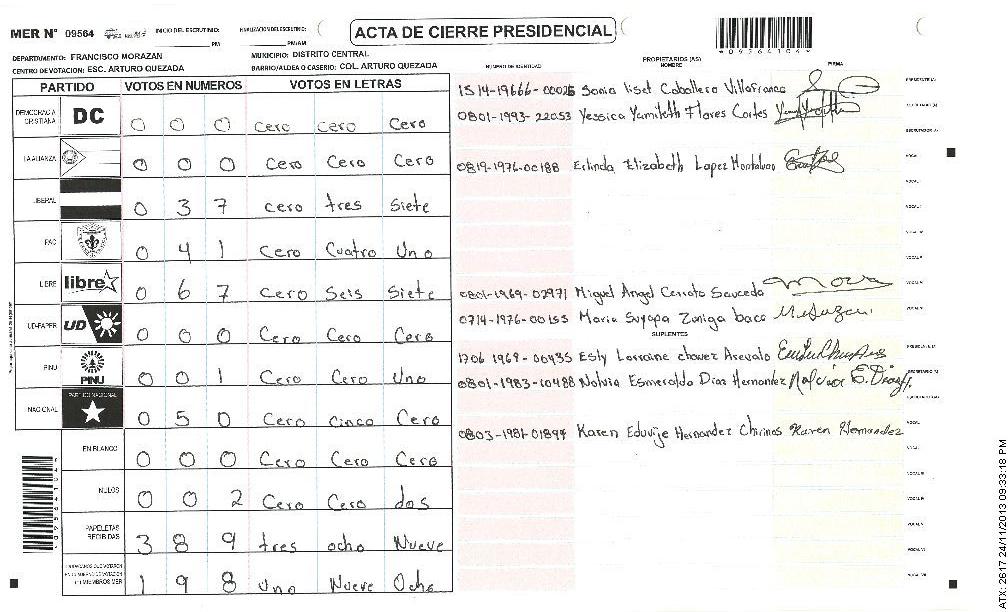 MER N° 09564 INICIO DEL ESCRUTINIO: FINALIZACION DEL ESCRUTINIO:
PM PM/AM
ACTA DE CIERRE PRESIDENCIAL
*09564104*
DEPARTAMENTO: FRANCISCO MORAZAN MUNICIPIO: DISTRITO CENTRAL
CENTRO DE VOTACION: ESC. ARTURO QUEZADA BARRIO/ALDEA O CASERIO: COL. ARTURO QUEZADA
PARTIDO VOTOS EN NUMEROS VOTOS EN LETRAS
DEMOCRACIA CRISTIANA DC 0 0 0 Cero Cero Cero
LA ALIANZA 0 0 0 Cero Cero Cero
LIBERAL 0 3 7 Cero tres Siete
PAC 0 4 1 Cero Cuatro Uno
LIBRE libre 0 6 7 Cero Seis Siete
UD-FAPER UD 0 0 0 Cero Cero Cero
PINU PINU 0 0 1 Cero Cero Uno
NACIONAL PARTIDO NACIONAL 0 5 0 Cero Cinco Cero
EN BLANCO 0 0 0 Cero Cero Cero
NULOS 0 0 2 Cero Cero dos
PAPELETAS RECIBIDAS 3 8 9 tres ocho Nueve
1 9 8 Uno Nueve Ocho
NUMERO DE IDENTIDAD PROPIETARIOS (AS) NOMBRE FIRMA
1514-19666-00025 Sonia liset Caballero Villafranca
0801-1993-22053 Yessica Yamileth Flores Cortes
0819-1976-00188 Erlinda Elizabeth Lopez Montalvan
0801-1969-02971 Miguel Angel Cerrato Sauceda
0714-1976-00153 Maria Suyapa Zuniga baca
SUPLENTES
1706 1969-00435 Esly Lorraine chavez Arevalo
0801-1983-10488 Nolvia Esmeralda Diaz Hernandez Nolvia E. Diaz H.
0803-1981-01894 Karen Eduvije Hernandez Chirinos Karen Hernandez
ATX: 2617 24/11/2013 09:33:18 PM